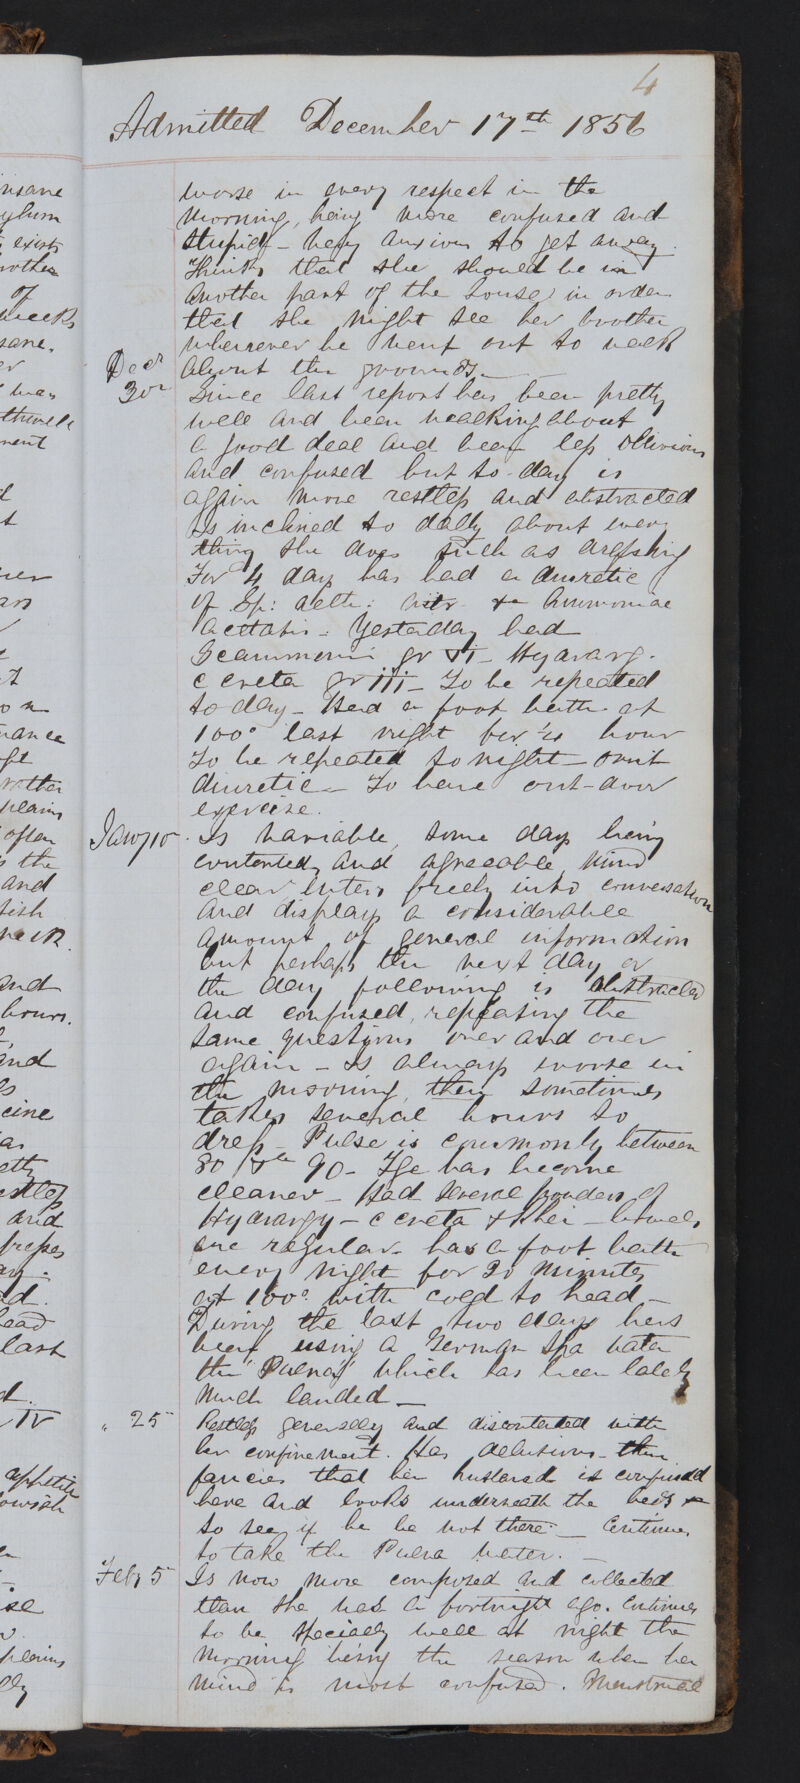 4
Admitted December 17th 1856
worse in every respect in the
morning, being more confused and
stupid - very anxious to get away.
Thinks that she should be in
another part of the house in order
that she might see her brother
whenever he went out to walk
about the grounds. -
Decr 30
Since last report has been pretty
well and been walking about
a good deal and been less oblivious
and confused but to-day is
again more restless and abstracted
Is inclined to dally about every
thing she does such as dressing
For 4 days has had a diuretic
of Sp: aeth: nitr. & Ammoniae
acetatis - Yesterday had
Scammonii gr VI - Hydrarg.
c creta gr iii - To be repeated
to day - Had a foot bath at
100° last night for 1/4 hour
To be repeated to night - omit
diuretic - To have out-door
exercise.
Jany 10. Is variable, some days being
contented and agreeable, mind
clear enters freely into conversation
and displays a considerable
amount of general information
but perhaps the next day or
the day following is abstracted
and confused, repeating the
same questions over and over
again - Is always worse in
the morning, then sometimes
takes several hours to
dress - Pulse is commonly between
80 & 90 - Tge has become
cleaner - Had several powders of
Hydrargy - c creta & Rhei - bowels
are regular - has a foot bath
every night for 20 minutes
at 100° with cold to head -
During the last two days has
been using a German Spa water
the "Pullna" which has been lately
much lauded -
" 25
Restless generally and discontented with
her confinement. Has delusions - then
fancies that her husband is confined
here and looks underneath the beds &
to see if he be not there - Continues
to take the Pulna water. -
Feby 5
Is now more composed and collected
than she was a fortnight ago. Continues
to be specially well at night the
morning being the season when her
mind is most confused. Menstrual